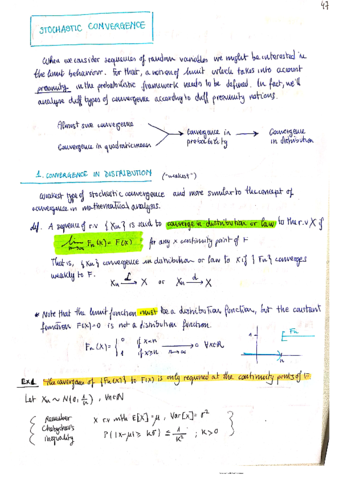 47
STOCHASTIC CONVERGENCE
When we consider sequences of random variables we might be interested in
the limit behaviour. For that, a notion of limit which takes into account
proximity in the probabilistic framework needs to be defined. In fact, we'll
analyse diff types of convergence according to diff proximity notions.
Almost sure convergence
Convergence in quadratic mean
Convergence in probability
Convergence in distribution
1. CONVERGENCE IN DISTRIBUTION ("weakest")
Weakest type of stochastic convergence and more similar to the concept of
convergence in mathematical analysis.
def. A sequence of r.v {Xn} is said to converge in distribution or law to the r.v X if
lim n→∞ Fn(x) = F(x) for any x continuity point of F
That is, {Xn} convergence in distribution or law to X if {Fn} converges
weakly to F.
Xn →L X or Xn →d X
* Note that the limit function must be a distribution function, but the constant
function F(x)=0 is not a distribution function.
Fn(x) = { 0 if x<n
1 if x≥n → n→∞ 0 ∀x∈R
1 Fn
n
Ex.1 The convergence of {Fn(x)} to F(x) is only required at the continuity points of F
Let Xn ~ N(0, 1/n), ∀n∈N
Remember
Chebyshev's
inequality
X r.v with E[X]=μ, Var[X]=σ²
P(|X-μ| ≥ kσ) ≤ 1/k² ; k>0